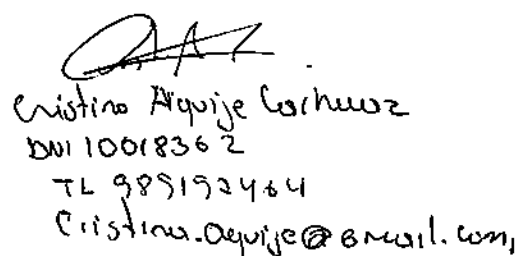 Cristina Aquije Cachuaz
DNI 10018362
TL 989192464
Cristina.aquije@gmail.com,